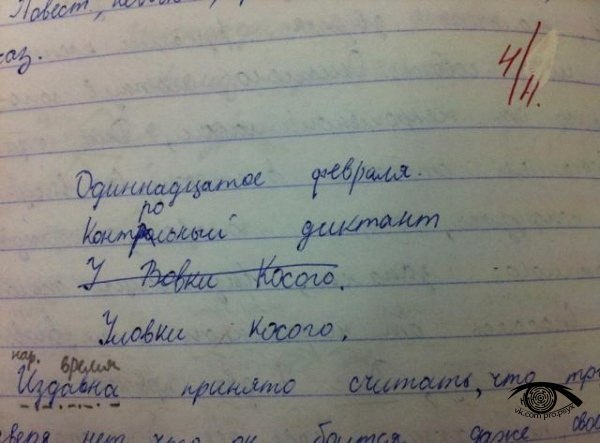 Повест.,
каз.
4/4.
Одиннадцатое февраля.
ро
Контрольный диктант
У Вовки Косого.
Уловки косого.
нар. время
Издавна принято считать, что
зверя нет, чего он боится даже свое
vk.com pro.psyx